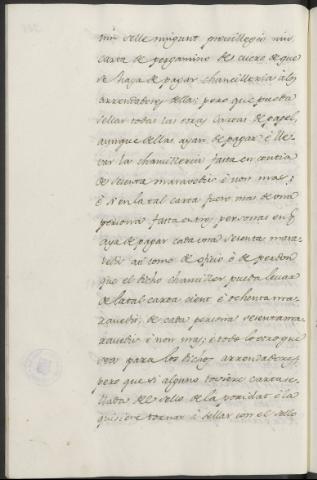 nin selle ningunt previllegio nin
carta de pergamino de cuero de que
se haya de pagar chancilleria á los
arrendadores della; pero que pueda
sellar todas las otras cartas de papel,
aunque dellas ayan de pagar é lle-
var la chancilleria fasta en contia
de sesenta maravedis é non mas;
é si en la tal carta fuere mas de una
persona fasta en tres personas en q
aya de pagar cada una sesenta mara-
vedis asi como de oficio é de perdon
que el dicho chanciller pueda levar
de la tal carta cient é ochenta ma-
ravedis, de cada persona sesenta ma-
ravedis é non mas; é todo lo otro que
sea para los dichos arrendadores;
pero que si alguno toviere carta se-
llada del sello de la poridat é la
quisiere tornar á sellar con el sello